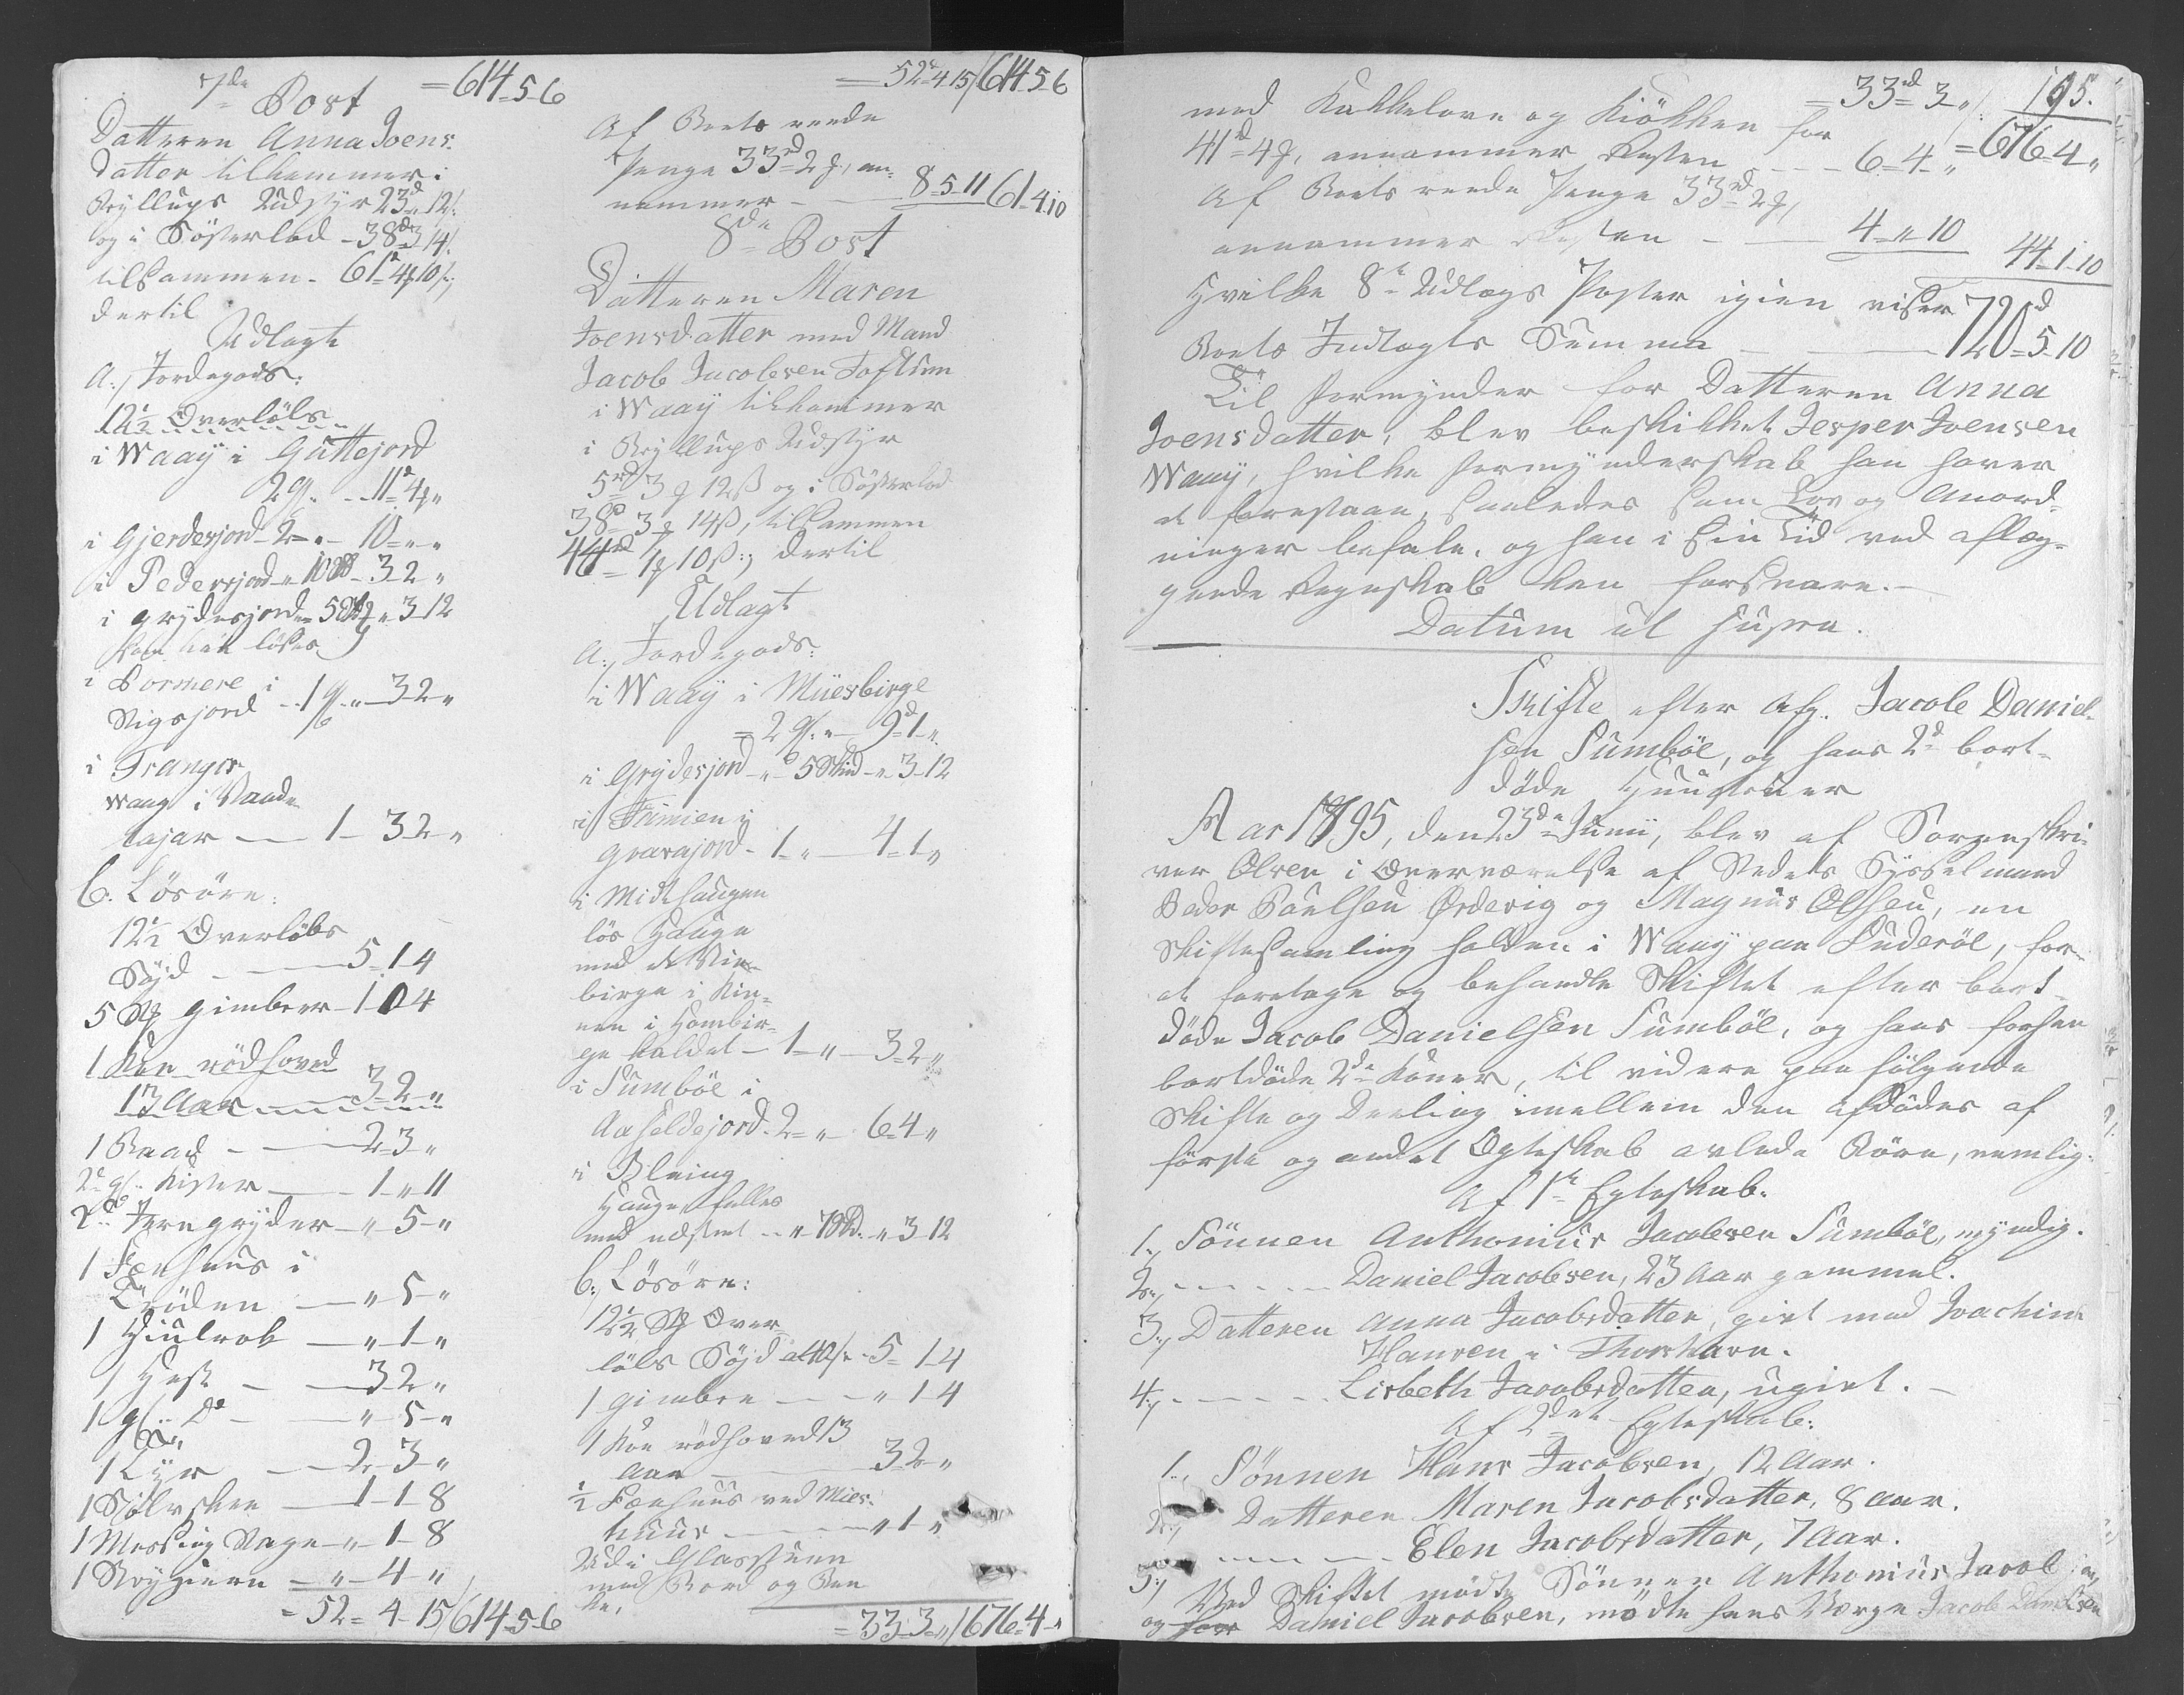 7de Post =614-5-6
Datteren Anna Joens:
datter tilkommer i
Bryllups Udstyr 23d „ 12/:
og i Søsterlod - 38d 3 14/:
tilsammen - 61d 4 10/:,
dertil
Udlagt
A:, Jordegods:
12½ Overløbs
i Waaÿ i Guttejord
2 - - 11d 4 „
i Gjerdesjord - 2 - „ - 10 - „ - „
i Pedersjord - „ 10 - 3-2 „
i Grydesjord - „ 5 „ 3-12
kan løses
i Pormere i
Rigsjord - 1 - „ - 3-2 „
i Trangis
wang i
tajar — 1 - 3-2 - „
b. Løsøre:
12½ Overløbs
Søÿd - — 5-1-4
5 gimbrer - 1-0-4
1 Koe rødhoved
13 Aar — 3-2 - „
1 Baad - — 2-3 - „
2de gl: Kister — 1 - „ 11
2de Jerngryder - „ 5 - „
1 Fæehuus i
Trøden — „ 5 - „
1 Hiulrok — „ 1 - „
1 Hest - — 3-2 „
1 gl: Do - — „ 5 - „
1 Lÿr — 2-3 - „
1 Sølvskee — 1-1-8
1 Messing „ 1-8
1 — „ 4 „
= 52 = 4-15/614-5-6
=52d 4-15/614-5-6
Af Boets reede
Penge 33rd 2, an-
nammer - — 8-5-11 61-4-10
8de Post
Datteren Maren
Joensdatter med Mand
Jacob Jacobsen
i Waaÿ tilkommer
i Bryllups Udstyr
5rd 3 12ß og i Søsterlod
38d 3 14ß, tilsammen
44rd 1 10ß:, dertil
Udlagt
A:, Jordegods:
i Waaÿ i Müesbirge
= 2 - „ — 9d 1 „
i Grydesjord - „ - 5 Skind - „ 3-12
i Famien i
Gravajord - 1 - „ — 4-1 „
i Midthaugen
løs Hauge
med
birge i Kin-
nen i Hambir-
ge kaldet - 1 - „ — 3-2 „
i Sumbøe i
Aaheldejord - 2 = „ - 6-4 „
i Blaing
Hauge, fælles
med næstnt - - „ 7 „ 3-12
b:, Løsøre:
12½ Over-
løbs Søÿd - 5-1-4
1 gimbre — - „ 1-4
1 Koe rødhoved 13
Aar — 3-2 „
½ Fæehuus ved Mies-
huus — „ 1 - „
Udi Glasstuen
med Bord og Ben
ke,
= 33-3 - „/676-4 - „
= 33rd 3 „/: 195.
med Kakkelovn og Kiøkken for
41d 4, annammer Resten - - - 6-4 - „ =676-4 „
Af Boets reede Penge 33rd 2,
annammer Resten - — 4 - „ 10
44-1-10
Hvilke 8te Udlægs Poster igien viser
Boets Indlægts Summa — 720d 5-10
Til Formynder for Datteren Anna
Joensdatter, blev beskikket Jesper Joensen
Waaÿ, hvilke Formynderskab han haver
at forestaae, saaledes som Lov og Anord-
ninger befale, og han i Sin Tid ved aflæg-
gende Regnskab kan forsvare. -
Datum ut supra.
Skifte efter Afg. Jacob Daniel-
sen Sumbøe, og hans 2de bort-
døde Hustruer
Aar 1795, den 23de Junii, blev af Sorenskri-
ver Olsen i Overværelse af Stedets Sysselmand
Peder Poulsen Ørdevig og Magnus Olsen, en
Skiftesamling holden i Waaÿ paa Suderöe, for
at foretage og behandle Skiftet efter bort-
døde Jacob Danielsen Sumbøe, og hans forhen
bortdøde 2de Koner, til videre paa følgende
Skifte og Deeling imellem den afdødes af
første og andet Ægteskab avlede Børn, nemlig:
Af 1te Egteskab:
1:, Sønnen Anthonius Jacobsen Sumbøe, myndig.
2:, - - - - - Daniel Jacobsen, 23 Aar gammel.
3:, Datteren Anna Jacobsdatter, givt med Joachim
Hansen i Thorshavn.
4:, - - - - - Lisbeth Jacobsdatter, ugivt. -
Af 2det Egteskab:
1:, Sønnen Hans Jacobsen, 12 Aar.
2:, Datteren Maren Jacobsdatter, 8 Aar.
3:, - - - - - Elen Jacobsdatter, 7 Aar.
Ved Skiftet mødte Sønnen Anthonius Jacobsen,
og for Daniel Jacobsen, mødte hans Værge Jacob Danielsen